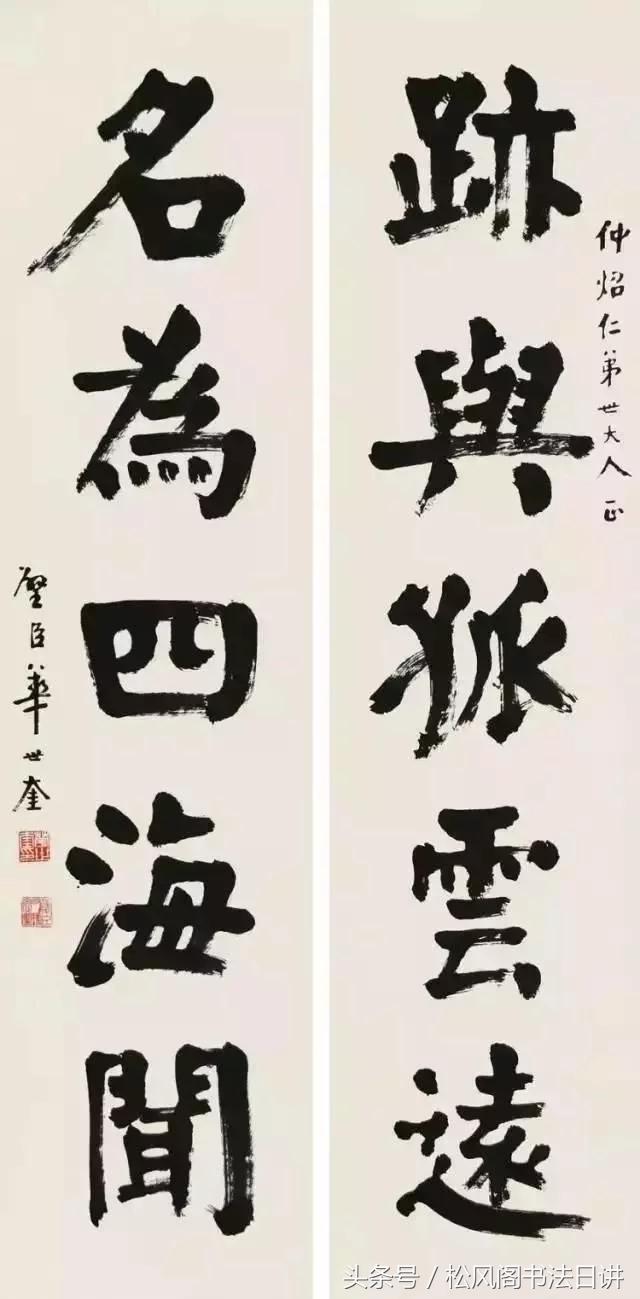 仲炤仁弟世大人正
跡與孤雲遠
名為四海聞
璧臣華世奎
头条号／松风阁书法日讲